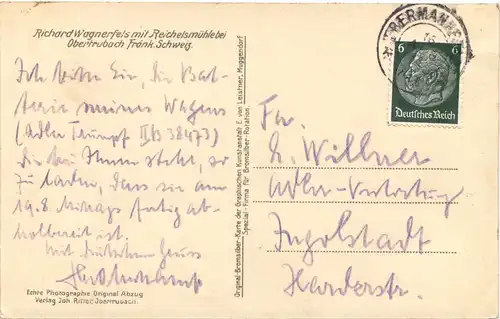 Richard Wagnerfels mit Reichelsmühle bei
Obertrubach Fränk. Schweiz.
Ich bitte Sie, die Bat-
terie meines Wagens
(Adler Trumpf IIB 38473)
die bei Ihnen steht, so
zu laden, dass sie am
19.8. Mittags fertig ab-
holbereit ist.
Mit deutschem Gruss
Echte Photographie Original Abzug
Verlag Joh. Ritter Obertrubach.
Original-Bromsilber-Karte der Graphischen Kunstanstalt E. von Leistner, Muggendorf
Spezial-Firma für Bromsilber-Rotation.
6 6
Deutsches Reich
Fa.
Willner
Adler-Vertretung
Ingolstadt
Harderstr.